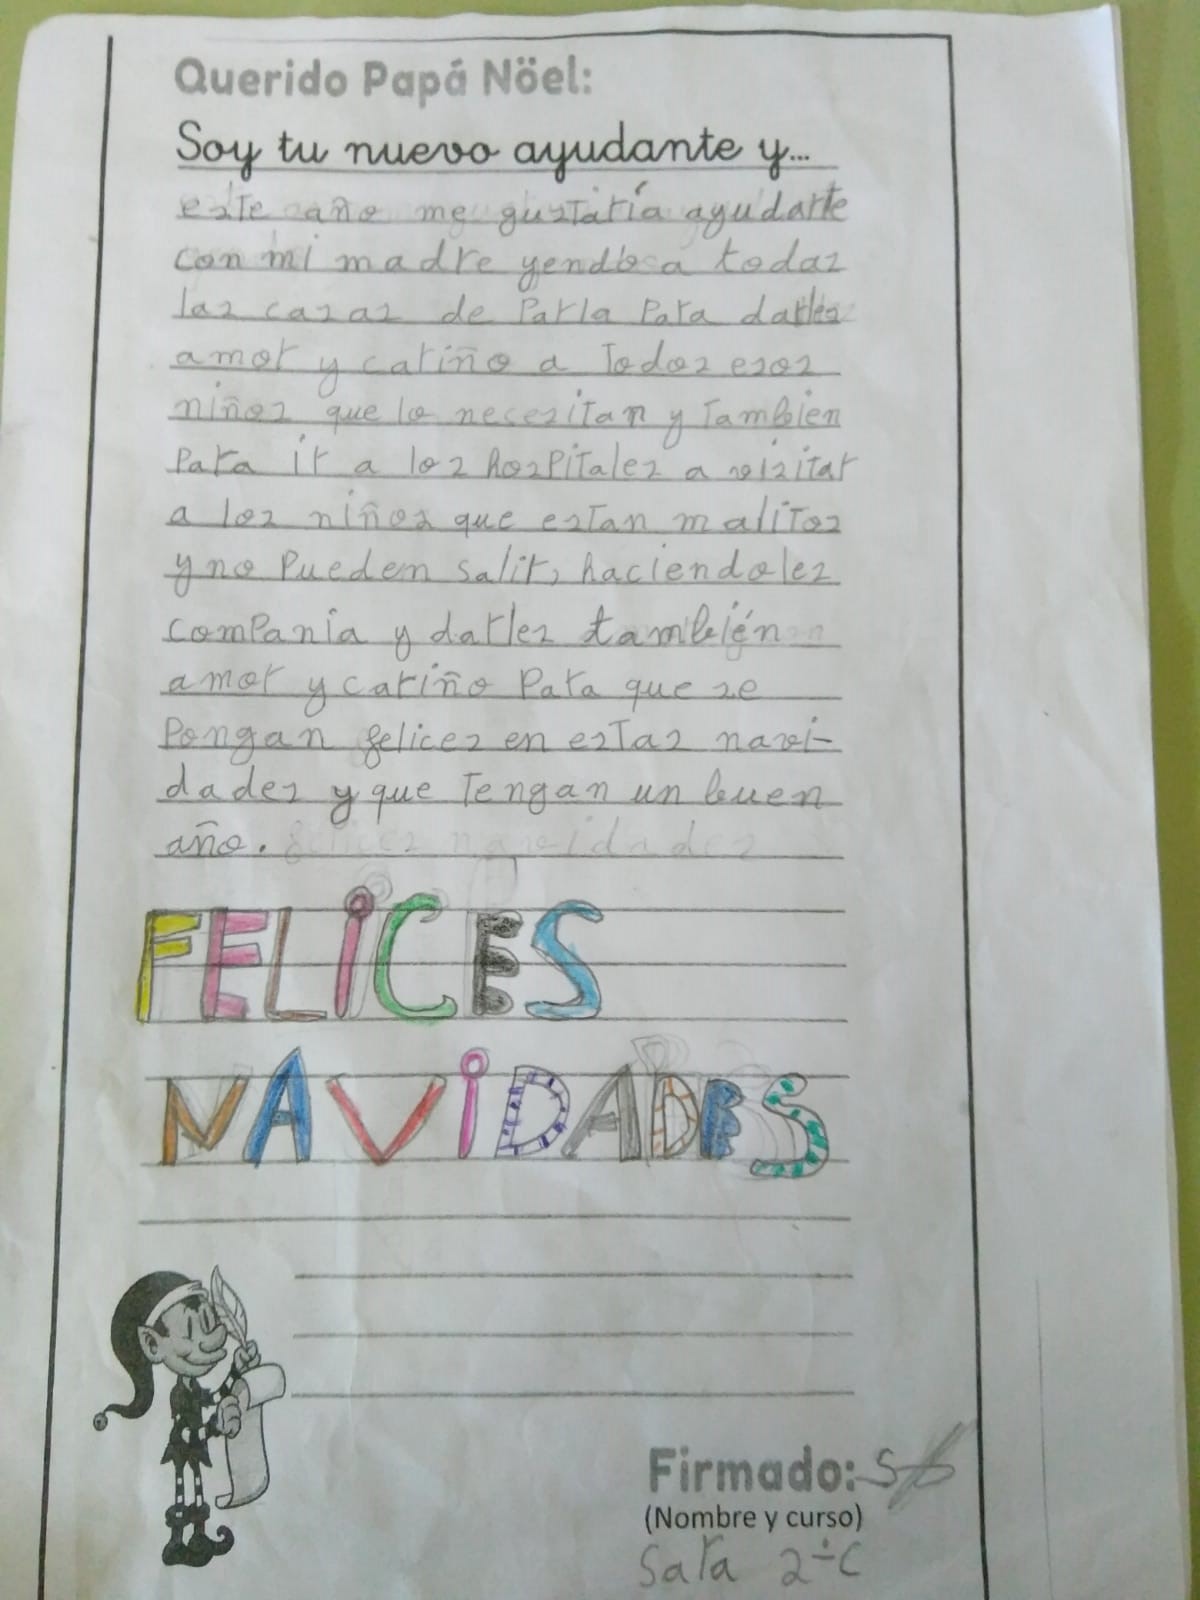 Querido Papá Nöel:
Soy tu nuevo ayudante y...
este año me gustaría ayudarte
con mi madre yendo a todas
las casas de Parla Para darles
amor y cariño a Todos esos
niños que lo necesitan y También
Para ir a los hospitales a visitar
a los niños que estan malitos
y no Pueden salir, haciendoles
compania y darles también
amor y cariño Para que se
Pongan felices en estas navi-
dades y que Tengan un buen
año. felices navidades
FELiCES
NAViDADES
Firmado:
(Nombre y curso)
Sara 2º C